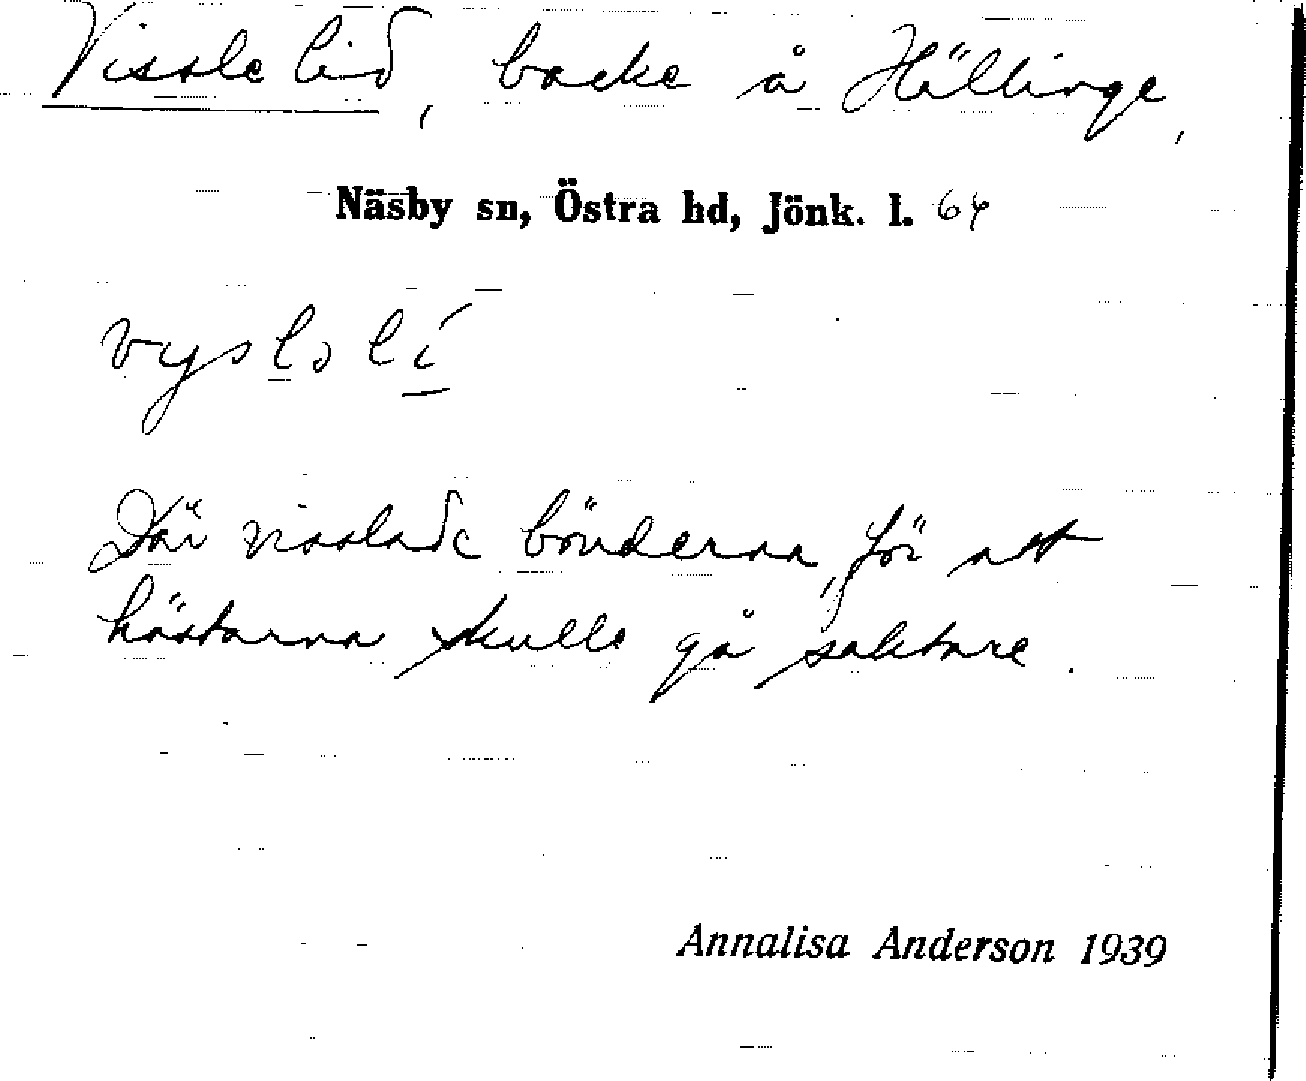 Vissle lid, backe å Hällinge,
Näsby sn, Östra hd, Jönk. l. 64
vyslə lí
Där visslade bönderna, för att
hästarna skulle gå saktare.
Annalisa Anderson 1939